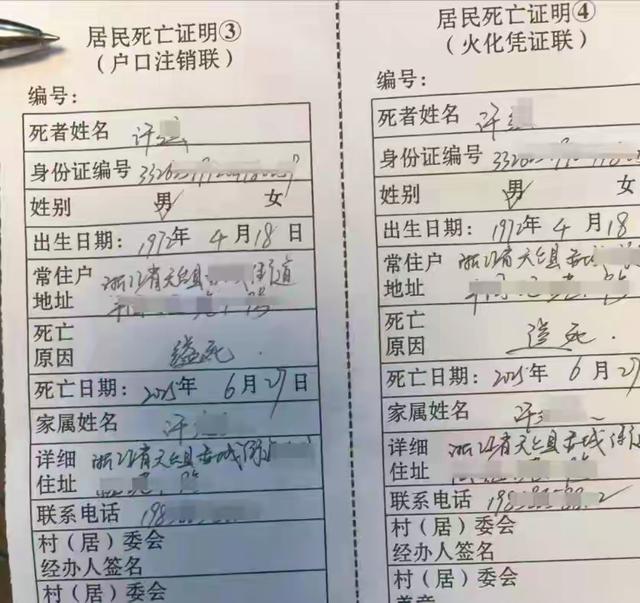 居民死亡证明③
（户口注销联）
编号：
死者姓名 许
身份证编号
姓别 男 女
出生日期：1972年4月18日
常住户地址 浙江省天台县 街道
死亡原因 缢死.
死亡日期：2025年6月27日
家属姓名 许
详细住址 浙江省天台县赤城街
联系电话 198
村（居）委会
经办人签名
村（居）委会
居民死亡证明④
（火化凭证联）
编号：
死者姓名 许
身份证编号
姓别 男
出生日期：1972年4月18
常住户地址 浙江省天台县赤城街
死亡原因 缢死.
死亡日期：2025年6月27
家属姓名 许
详细住址 浙江省天台县赤城街道
联系电话 198
村（居）委会
经办人签名
村（居）委会
盖章